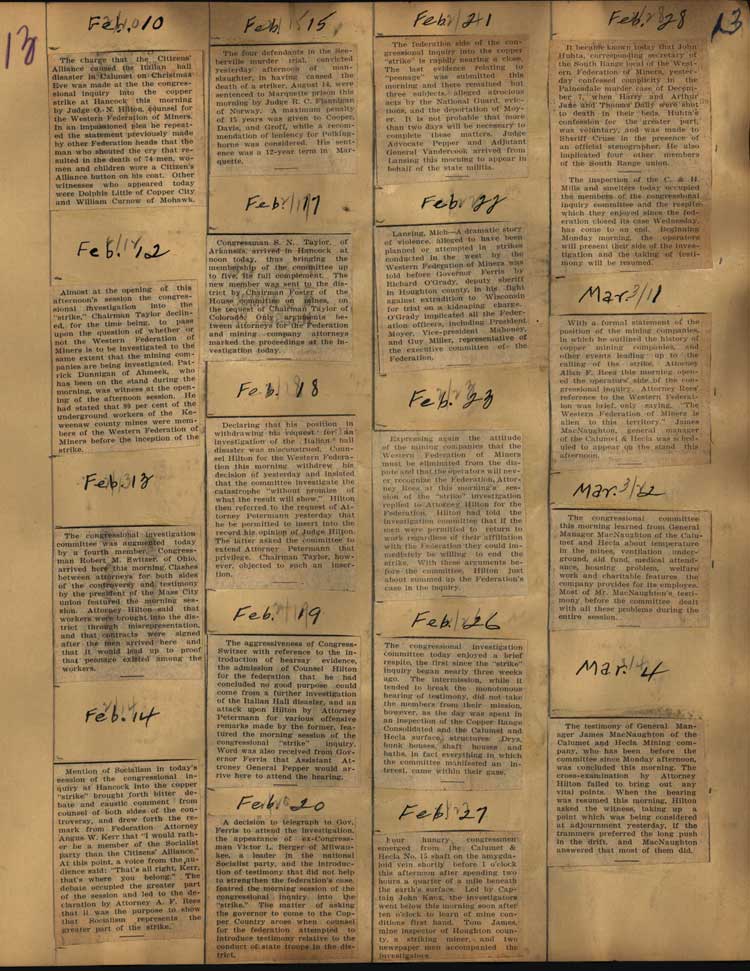 13
Feb. 10
The charge that the Citizens'
Alliance caused the Italian hall
disaster in Calumet on Christmas
Eve was made at the the congres-
sional inquiry into the copper
strike at Hancock this morning
by Judge O. N. Hilton, counsel for
the Western Federation of Miners.
In an impassioned plea he repeat-
ed the statement previously made
by other Federation heads that the
man who shouted the cry that re-
sulted in the death of 74 men, wo-
men and children wore a Citizen's
Alliance button on his coat. Other
witnesses who appeared today
were Dolphis Little of Copper City
and William Curnow of Mohawk.
Feb. 12
Almost at the opening of this
afternoon's session the congres-
sional investigation into the
"strike," Chairman Taylor declin-
ed, for the time being, to pass
upon the question of whether or
not the Western Federation of
Miners is to be investigated to the
same extent that the mining com-
panies are being investigated. Pat-
rick Dunnigan of Ahmeek, who
has been on the stand during the
morning, was witness at the open-
ing of the afternoon session. He
had stated that 89 per cent of the
underground workers of the Ke-
weenaw county mines were mem-
bers of the Western Federation of
Miners before the inception of the
strike.
Feb. 13
The congressional investigation
committee was augmented today
by a fourth member, Congress-
man Robert M. Switzer, of Ohio,
arrived here this morning. Clashes
between attorneys for both sides
of the controversy and testimony
by the president of the Mass City
union featured the morning ses-
sion. Attorney Hilton said that
workers were brought into the dis-
trict through misrepresentation,
and that contracts were signed
after the men arrived here and
that it would lead up to proof
that peonage existed among the
workers.
Feb. 14
Mention of Socialism in today's
session of the congressional in-
quiry at Hancock into the copper
"strike" brought forth bitter de-
bate and caustic comment from
counsel of both sides of the con-
troversy, and drew forth the re-
mark from Federation Attorney
Angus W. Kerr that "I would rath-
er be a member of the Socialist
party than the Citizens' Alliance."
At this point, a voice from the au-
dience said: "That's all right, Kerr,
that's where you belong." The
debate occupied the greater part
of the session and led to the de-
claration by Attorney A. F. Rees
that it was the purpose to show
that Socialism represents the
greater part of the strike.
Feb. 15
The four defendants in the See-
berville murder trial, convicted
yesterday afternoon of man-
slaughter, in having caused the
death of a striker, August 14, were
sentenced to Marquette prison this
morning by Judge R. C. Flannigan
of Norway. A maximum penalty
of 15 years was given to Cooper,
Davis, and Groff, while a recom-
mendation of leniency for Polking-
horne was considered. His sent-
ence was a 12-year term in Mar-
quette.
Feb. 17
Congressman S. N. Taylor, of
Arkansas, arrived in Hancock at
noon today, thus bringing the
membership of the committee up
to five, its full complement. The
new member was sent to the dis-
trict by Chairman Foster of the
House committee on mines, on
the request of Chairman Taylor of
Colorado. Only arguments be-
tween attorneys for the Federation
and mining company attorneys
marked the proceedings at the in-
vestigation today.
Feb. 18
Declaring that his position in
withdrawing his request for an
investigation of the Italian hall
disaster was misconstrued, Coun-
sel Hilton for the Western Federa-
tion this morning withdrew his
decision of yesterday and insisted
that the committee investigate the
catastrophe "without promise of
what the result will show." Hilton
then referred to the request of At-
torney Petermann yesterday that
he be permitted to insert into the
record his opinion of Judge Hilton.
The latter asked the committee to
extend Attorney Petermann that
privilege. Chairman Taylor, how-
ever, objected to such an inser-
tion.
Feb. 19
The aggressiveness of Congress-
Switzer with reference to the in-
troduction of hearsay evidence,
the admission of Counsel Hilton
for the federation that he had
concluded no good purpose could
come from a further investigation
of the Italian Hall disaster, and an
attack upon Hilton by Attorney
Petermann for various offensive
remarks made by the former, fea-
tured the morning session of the
congressional "strike" inquiry.
Word was also received from Gov-
ernor Ferris that Assistant At-
torney General Pepper would ar-
rive here to attend the hearing.
Feb. 20
A decision to telegraph to Gov.
Ferris to attend the investigation,
the appearance of ex-Congress-
man Victor L. Berger of Milwau-
kee, a leader in the national
Socialist party, and the introduc-
tion of testimony that did not help
to strengthen the federation's case,
featured the morning session of the
congressional inquiry into the
"strike." The matter of asking
the governor to come to the Cop-
per Country arose when counsel
for the federation attempted to
introduce testimony relative to the
conduct of state troops in the dis-
trict.
Feb. 21
The federation side of the con-
gressional inquiry into the copper
"strike" is rapidly nearing a close.
The last evidence relating to
"peonage" was submitted this
morning and there remained but
three subjects, alleged atrocious
acts by the National Guard, evic-
tions, and the deportation of Moy-
er. It is not probable that more
than two days will be necessary to
complete these matters. Judge
Advocate Pepper and Adjutant
General Vandercook arrived from
Lansing this morning to appear in
behalf of the state militia.
Feb. 22
Lansing, Mich—A dramatic story
of violence, alleged to have been
planned or attempted in strikes
conducted in the west by the
Western Federation of Miners was
told before Governor Ferris by
Richard O'Grady, deputy sheriff
in Houghton county, in his fight
against extradition to Wisconsin
for trial on a kidnaping charge.
O'Grady implicated all the Feder-
ation officers, including President
Moyer, Vice-president Mahoney,
and Guy Miller, representative of
the executive committee of the
Federation.
Feb. 23
Expressing again the attitude
of the mining companies that the
Western Federation of Miners
must be eliminated from the dis-
pute and that the operators will nev-
er recognize the Federation, Attor-
ney Rees at this morning's ses-
sion of the "strike" investigation
replied to Attorney Hilton for the
Federation. Hilton had told the
investigation committee that if the
men were permitted to return to
work regardless of their affiliation
with the Federation they could im-
mediately be willing to end the
strike. With these arguments be-
fore the committee, Hilton just
about summed up the Federation's
case in the inquiry.
Feb. 26
The congressional investigation
committee today enjoyed a brief
respite, the first since the "strike"
inquiry began nearly three weeks
ago. The intermission, while it
tended to break the monotonous
hearing of testimony, did not take
the members from their mission,
however, as the day was spent in
an inspection of the Copper Range
Consolidated and the Calumet and
Hecla surface, structures. Drys,
bunk houses, shaft houses and
baths, in fact everything in which
the committee manifested an in-
terest, came within their gaze.
Feb. 27
Four hungry congressmen
emerged from the Calumet &
Hecla No. 15 shaft on the amygda-
loid vein shortly before 1 o'clock
this afternoon after spending two
hours a quarter of a mile beneath
the earth's surface. Led by Cap-
tain John Knox, the investigators
went below this morning soon after
ten o'clock to learn of mine con-
ditions first hand. Tom James,
mine inspector of Houghton coun-
ty, a striking miner, and two
newspaper men accompanied the
investigators.
Feb. 28
13
It became known today that John
Huhta, corresponding secretary of
the South Range local of the West-
ern Federation of Miners, yester-
day confessed complicity in the
Painesdale murder case of Decem-
ber 7, when Harry and Arthur
Jane and Thomas Dally were shot
to death in their beds. Huhta's
confession for the greater part,
was voluntary, and was made to
Sheriff Cruse in the presence of
an official stenographer. He also
implicated four other members
of the South Range union.
The inspection of the C. & H.
Mills and smelters today occupied
the members of the congressional
inquiry committee and the respite
which they enjoyed since the fed-
eration closed its case Wednesday,
has come to an end. Beginning
Monday morning, the operators
will present their side of the inves-
tigation and the taking of testi-
mony will be resumed.
Mar. 1
With a formal statement of the
position of the mining companies,
in which he outlined the history of
copper mining companies, and
other events leading up to the
calling of the strike, Attorney
Allan F. Rees this morning open-
ed the operators' side of the con-
gressional inquiry. Attorney Rees'
reference to the Western Federat-
ion was brief, only saying, "The
Western Federation of Miners is
alien to this territory." James
MacNaughton, general manager
of the Calumet & Hecla was sched-
uled to appear on the stand this
afternoon.
Mar. 2
The congressional committee
this morning learned from General
Manager MacNaughton of the Calu-
met and Hecla about temperature
in the mines, ventilation under-
ground, aid fund, medical attend-
ance, housing problem, welfare
work and charitable features the
company provides for its employe.
Most of Mr. MacNaughton's testi-
mony before the committee dealt
with all these problems during the
entire session.
Mar. 4
The testimony of General Man-
ager James MacNaughton of the
Calumet and Hecla Mining com-
pany, who has been before the
committee since Monday afternoon,
was concluded this morning. The
cross-examination by Attorney
Hilton failed to bring out any
vital points. When the hearing
was resumed this morning, Hilton
asked the witness, taking up a
point which was being considered
at adjournment yesterday, if the
trammers preferred the long push
in the drift, and MacNaughton
answered that most of them did.